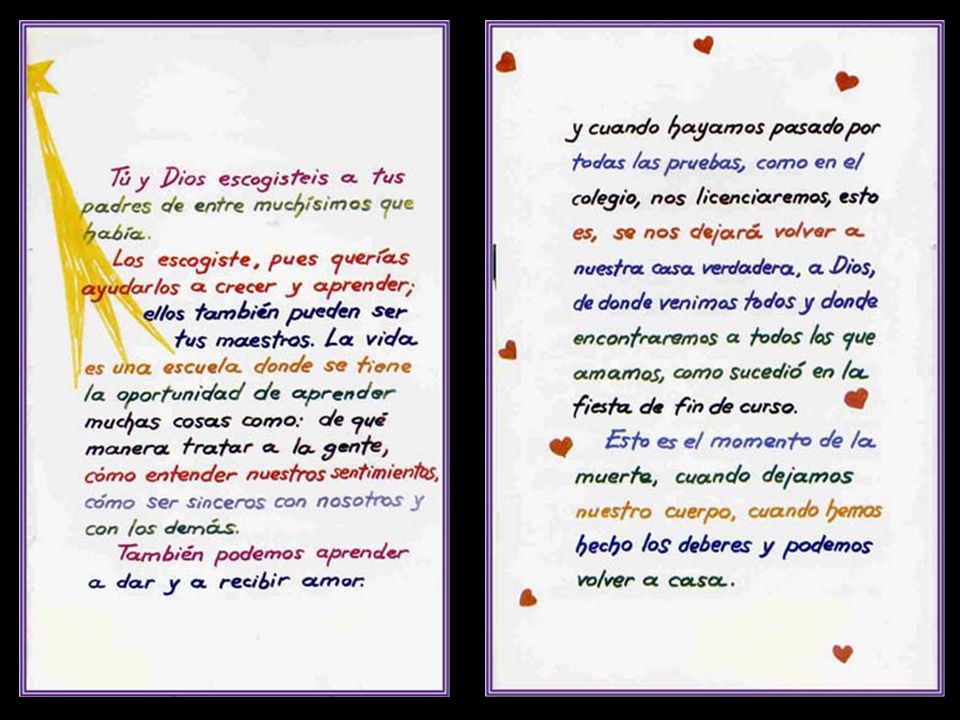 Tú y Dios escogisteis a tus
padres de entre muchísimos que
había.
Los escogiste, pues querías
ayudarlos a crecer y aprender;
ellos también pueden ser
tus maestros. La vida
es una escuela donde se tiene
la oportunidad de aprender
muchas cosas como: de qué
manera tratar a la gente,
cómo entender nuestros sentimientos,
cómo ser sinceros con nosotros y
con los demás.
También podemos aprender
a dar y a recibir amor.
y cuando hayamos pasado por
todas las pruebas, como en el
colegio, nos licenciaremos, esto
es, se nos dejará volver a
nuestra casa verdadera, a Dios,
de donde venimos todos y donde
encontraremos a todos los que
amamos, como sucedió en la
fiesta de fin de curso.
Esto es el momento de la
muerte, cuando dejamos
nuestro cuerpo, cuando hemos
hecho los deberes y podemos
volver a casa.